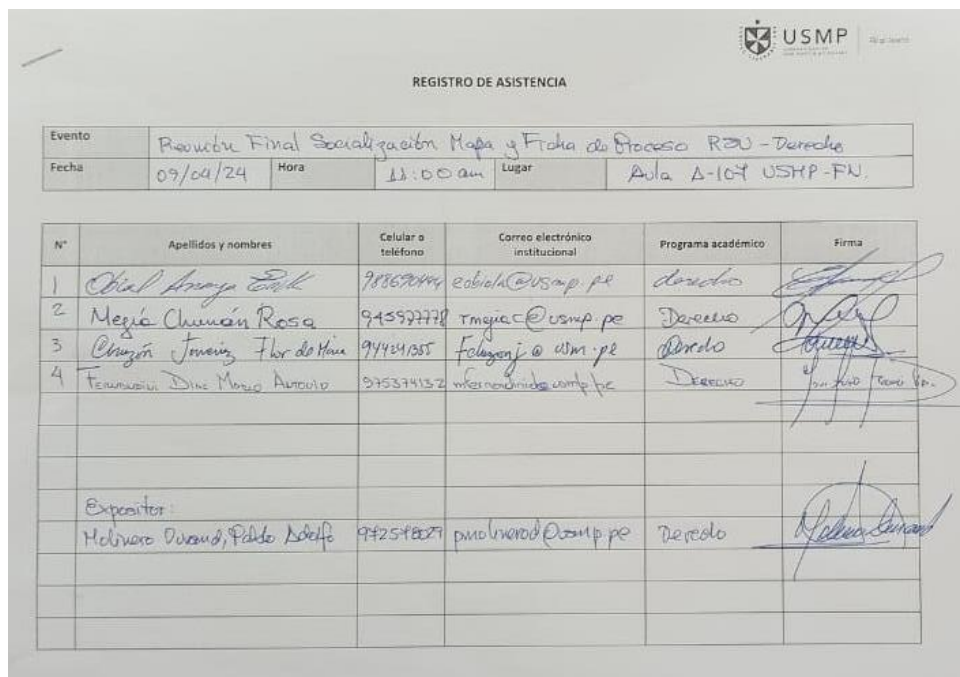 USMP
REGISTRO DE ASISTENCIA
Evento Reunión Final Socialización Mapa y Ficha de Proceso RSU - Derecho
Fecha 09/04/24 Hora 11:00 am Lugar Aula A-107 USMP-FN.
N° Apellidos y nombres Celular o teléfono Correo electrónico institucional Programa académico Firma
1 Anaya derecho
2 Megía Chumán Rosa 945977778 rmejiac@usmp.pe Derecho
3 Chuzón Flor de María 944241355 Derecho
4 Diaz Antonio 975374132 Derecho
Expositor:
Molinero Durand, Pablo Adolfo pmolinerod@usmp.pe Derecho